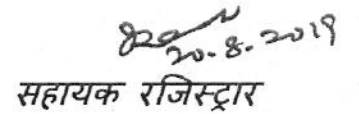 20-8-2019
सहायक रजिस्ट्रार